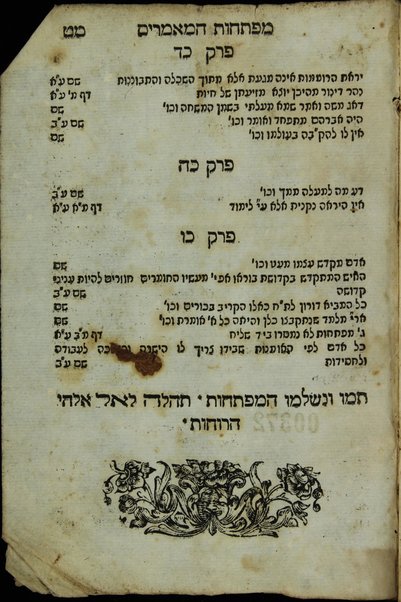 מפתחות המאמרים מט
פרק כד
יראת הרוממות אינה מגעת אלא מתוך השכלה והתבוננות שם ע"א
נהר דינור מהיכן יוצא מזיעתן של חיות דף מ' ע"א
דאג משה ואמר שמא מעלתי בשמן המשחה וכו' שם
היה אברהם מתפחד ואומר וכו' שם ע"ב
אין לו להק"בה בעולמו וכו' שם
פרק כה
דע מה למעלה ממך וכו' שם ע"ב
אין היראה נקנית אלא ע"י לימוד דף מ"א ע"א
פרק כו
אדם מקדש עצמו מעט וכו' שם
האיש המתקדש בקדושת בוראו אפי' מעשיו החומרים חוזרים להיות עניני
קדושה שם ע"ב
כל המביא דורון לת"ח כאלו הקריב בכורים וכו' שם
אר"י מלמד שנתקבצו כלן והיתה כל א' אומרת וכו' שם
ג' מפתחות לא נמסרו ביד שליח דף מ"ב ע"א
כל אדם לפי האומנות שבידו צריך לו הישרה לעבודה
ולחסידות שם ע"ב
תמו ונשלמו המפתחות ' תהלה לאל אלהי
הרוחות '
00372